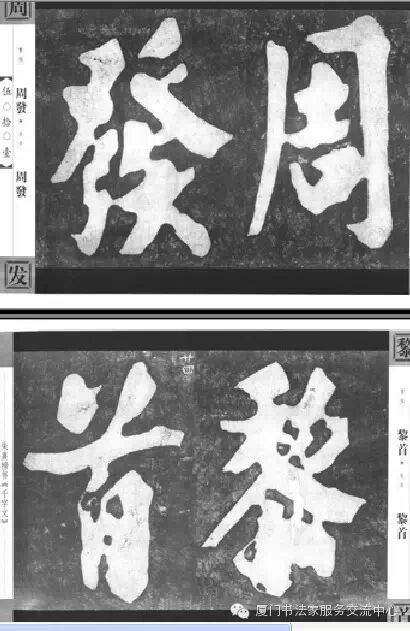 周
周發
周發
【伍〇拾〇壹】
发
周發
黎
黎首
黎首
黎首
廿四
朱熹榜书《千字文》
厦门书法家服务交流中心